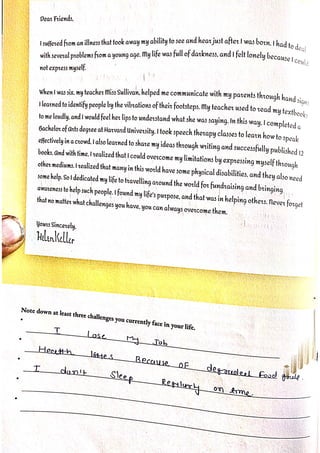 Dear Friends,
I suffered from an illness that took away my ability to see and hear just after I was born. I had to deal
with several problems from a young age. My life was full of darkness, and I felt lonely because I could
not express myself.
When I was six, my teacher Miss Sullivan, helped me communicate with my parents through hand signs
I learned to identify people by the vibrations of their footsteps. My teacher used to read my textbooks
to me loudly, and I would feel her lips to understand what she was saying. In this way, I completed a
Bachelor of Arts degree at Harvard University. I took speech therapy classes to learn how to speak
effectively in a crowd. I also learned to share my ideas through writing and successfully published 12
books. And with time, I realized that I could overcome my limitations by expressing myself through
other mediums. I realized that many in this world have some physical disabilities, and they also need
some help. So I dedicated my life to travelling around the world for fundraising and bringing
awareness to help such people. I found my life's purpose, and that was in helping others. Never forget
that no matter what challenges you have, you can always overcome them.
Yours Sincerely,
Helen Keller
Note down at least three challenges you currently face in your life.
I Lose My Job
Health Because OF Food
I don't Sleep on time